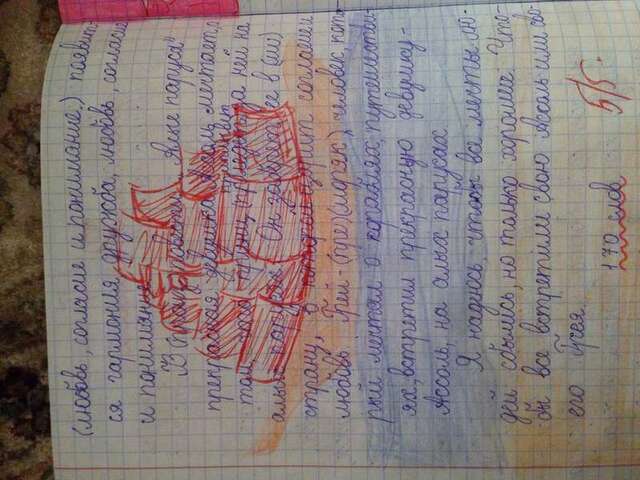 (любовь, согласие и понимание) появит-
ся гармония, дружба, любовь, согласие
и понимание.
Из повести "Алые паруса"
прекрасная девушка Ассоль мечтает о
том, что принц приплывёт за ней на
алых парусах. Он заберёт её в (им)
страну, в которой царит согласие и
любовь. Грей - (прек(моряк), человек, кото-
рый мечтал о кораблях, путешестви-
ях, встретил прекрасную девушку -
Ассоль, на алых парусах
Я надеюсь, чтобы все мечты лю-
дей сбылись, но только хорошие. Что-
бы все встретили свою Ассоль или сво-
его Грея.
170 слов
5/5.